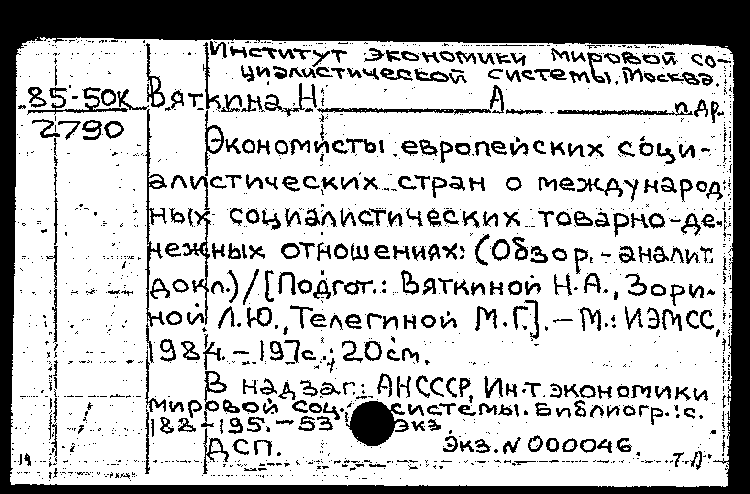 Институт экономики мировой со-
циалистической системы. Москва.
85-50к Вяткина, Н А и др.
2790
Экономисты европейских соци-
алистических стран о международ
ных социалистических товарно-де-
нежных отношениях: (Обзор.-аналит.
докл.)/[Подгот.: Вяткиной Н.А., Зори-
ной Л.Ю., Телегиной М.Г.]. - М.: ИЭМСС,
1984. - 197с.; 20см.
В надзаг.: АН СССР, Ин-т экономики
мировой соц. системы. Библиогр.: с.
188-195. - 53 экз.
ДСП. Экз. N 000046.